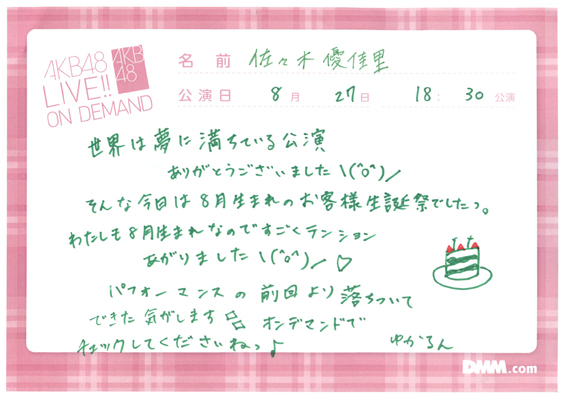 AKB48
LIVE!!
ON DEMAND
AKB
48
名前 佐々木優佳里
公演日 8月 27日 18:30公演
世界は夢に満ちている公演
ありがとうございました\(^o^)/
そんな今日は8月生まれのお客様生誕祭でしたっ。
わたしも8月生まれなのですごくテンション
あがりました\(^o^)/♡
パフォーマンスの前回より落ちついて
できた気がします オンデマンドで
チェックしてくださいねっ♪
ゆかるん
DMM.com